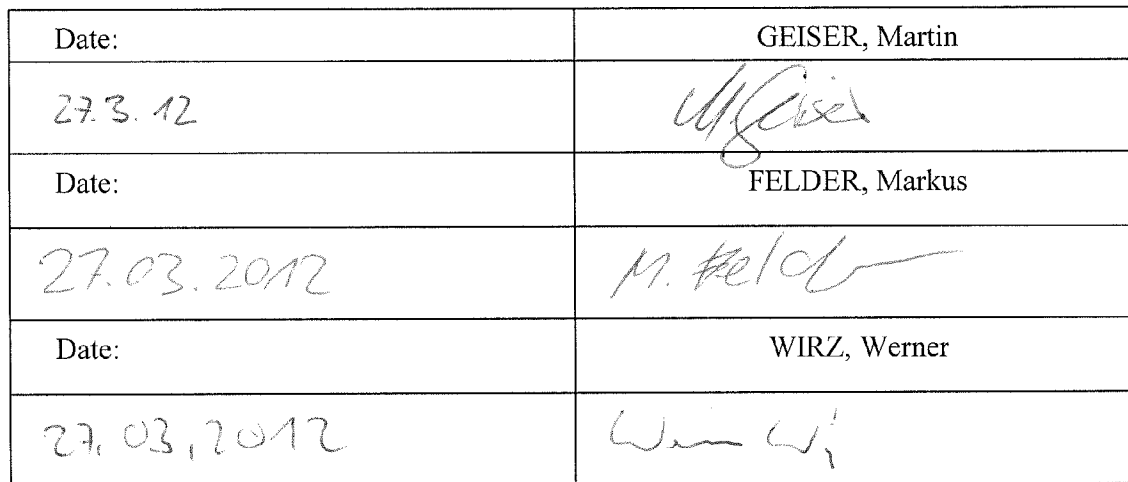 Date: GEISER, Martin
27.3.12 M. Geiser
Date: FELDER, Markus
27.03.2012 M. Felder
Date: WIRZ, Werner
27.03.2012